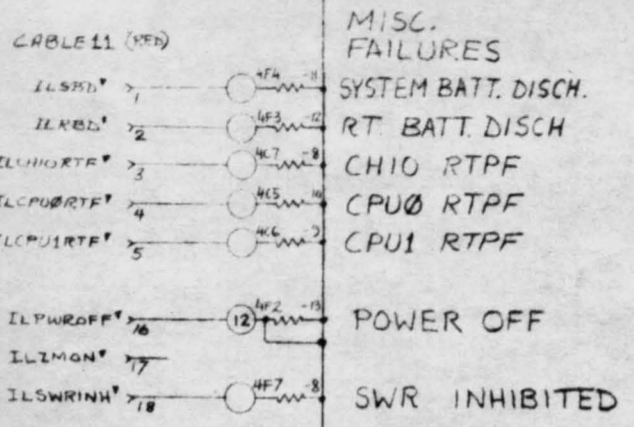 MISC.
CABLE 11 (RED)
FAILURES
ILSBD 1 4F4 -11 SYSTEM BATT. DISCH.
ILRBD 2 4F3 -12 RT. BATT. DISCH
ILCHIORTF 3 4C7 -8 CHIO RTPF
ILCPU0RTF 4 4C5 -10 CPU0 RTPF
ILCPU1RTF 5 4C6 -9 CPU1 RTPF
ILPWROFF 16 12 4F2 -13 POWER OFF
ILZMON 17
ILSWRINH 18 4F7 -8 SWR INHIBITED